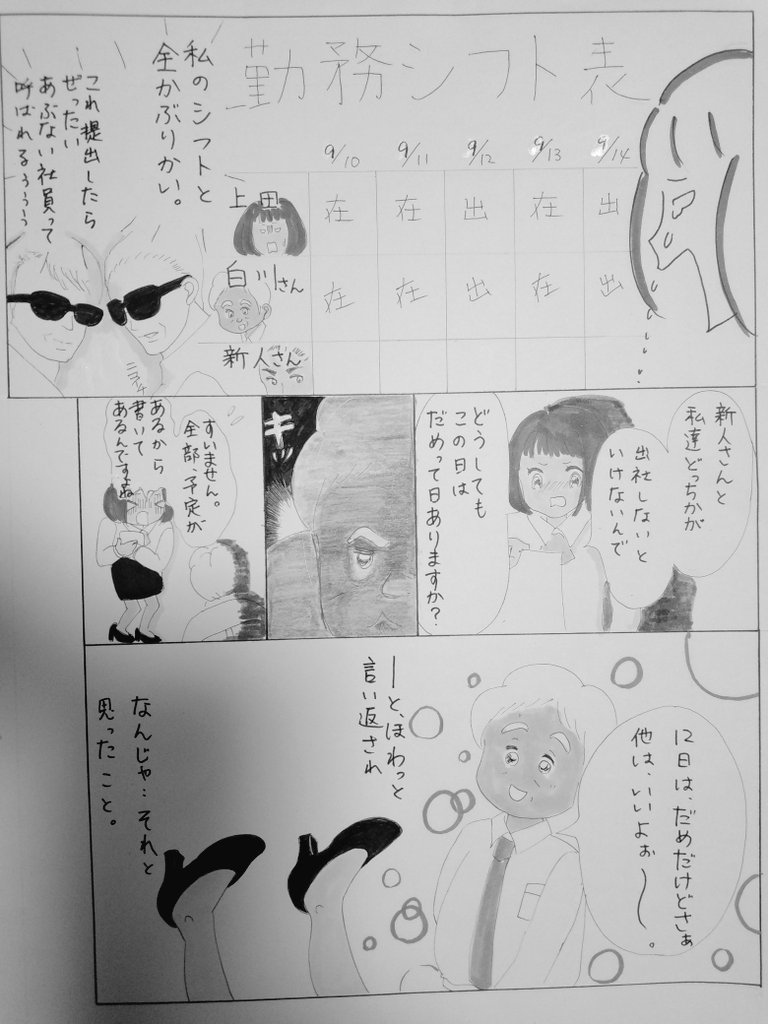 勤務シフト表
9/10 9/11 9/12 9/13 9/14
上田 在 在 出 在 出
白川さん 在 在 出 在 出
新人さん
私のシフトと
全かぶりかい。
これ提出したら
ぜったい
あぶない社員って
呼ばれるぅぅぅ
新人さんと
私達どっちかが
出社しないと
いけないんで
どうしても
この日は
だめって日ありますか?
キッ
すいません。
全部、予定が
あるから
書いて
あるんですよね
12日は、だめだけどさぁ
他は、いいよぉ〜。
ーと、ほわっと
言い返され
なんじゃ…それと
思ったこと。